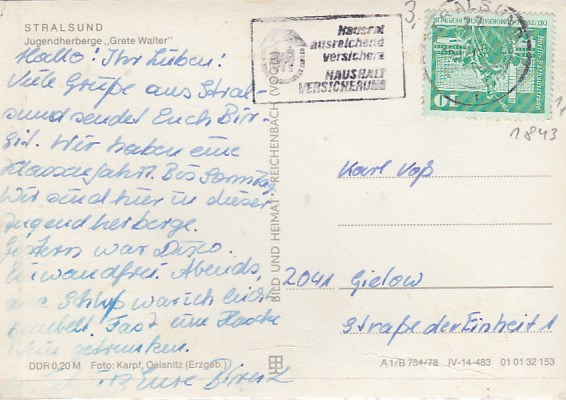 STRALSUND
Jugendherberge „Grete Walter"
Hallo! Ihr Lieben!
Viele Grüße aus Stral-
sund sendet Euch Bir-
git. Wir haben eine
Klassenfahrt. Bis Sonntag.
Wir sind hier in dieser
Jugendherberge.
Gestern war Disco.
Einwandfrei. Abends,
am Schluß war ich
Fast eine Flasche
Wein getrunken.
Eure
DDR 0,20 M Foto: Karpf, Oelsnitz (Erzgeb.)
BILD UND HEIMAT REICHENBACH (VOGTL)
Hausrat
ausreichend
versichern
HAUSHALT
VERSICHERUNG
3,
STRALSUND
10
1843
Karl Voß
2041 Gielow
Straße der Einheit 1
A 1/B 751/78 IV-14-483 01 01 32 153